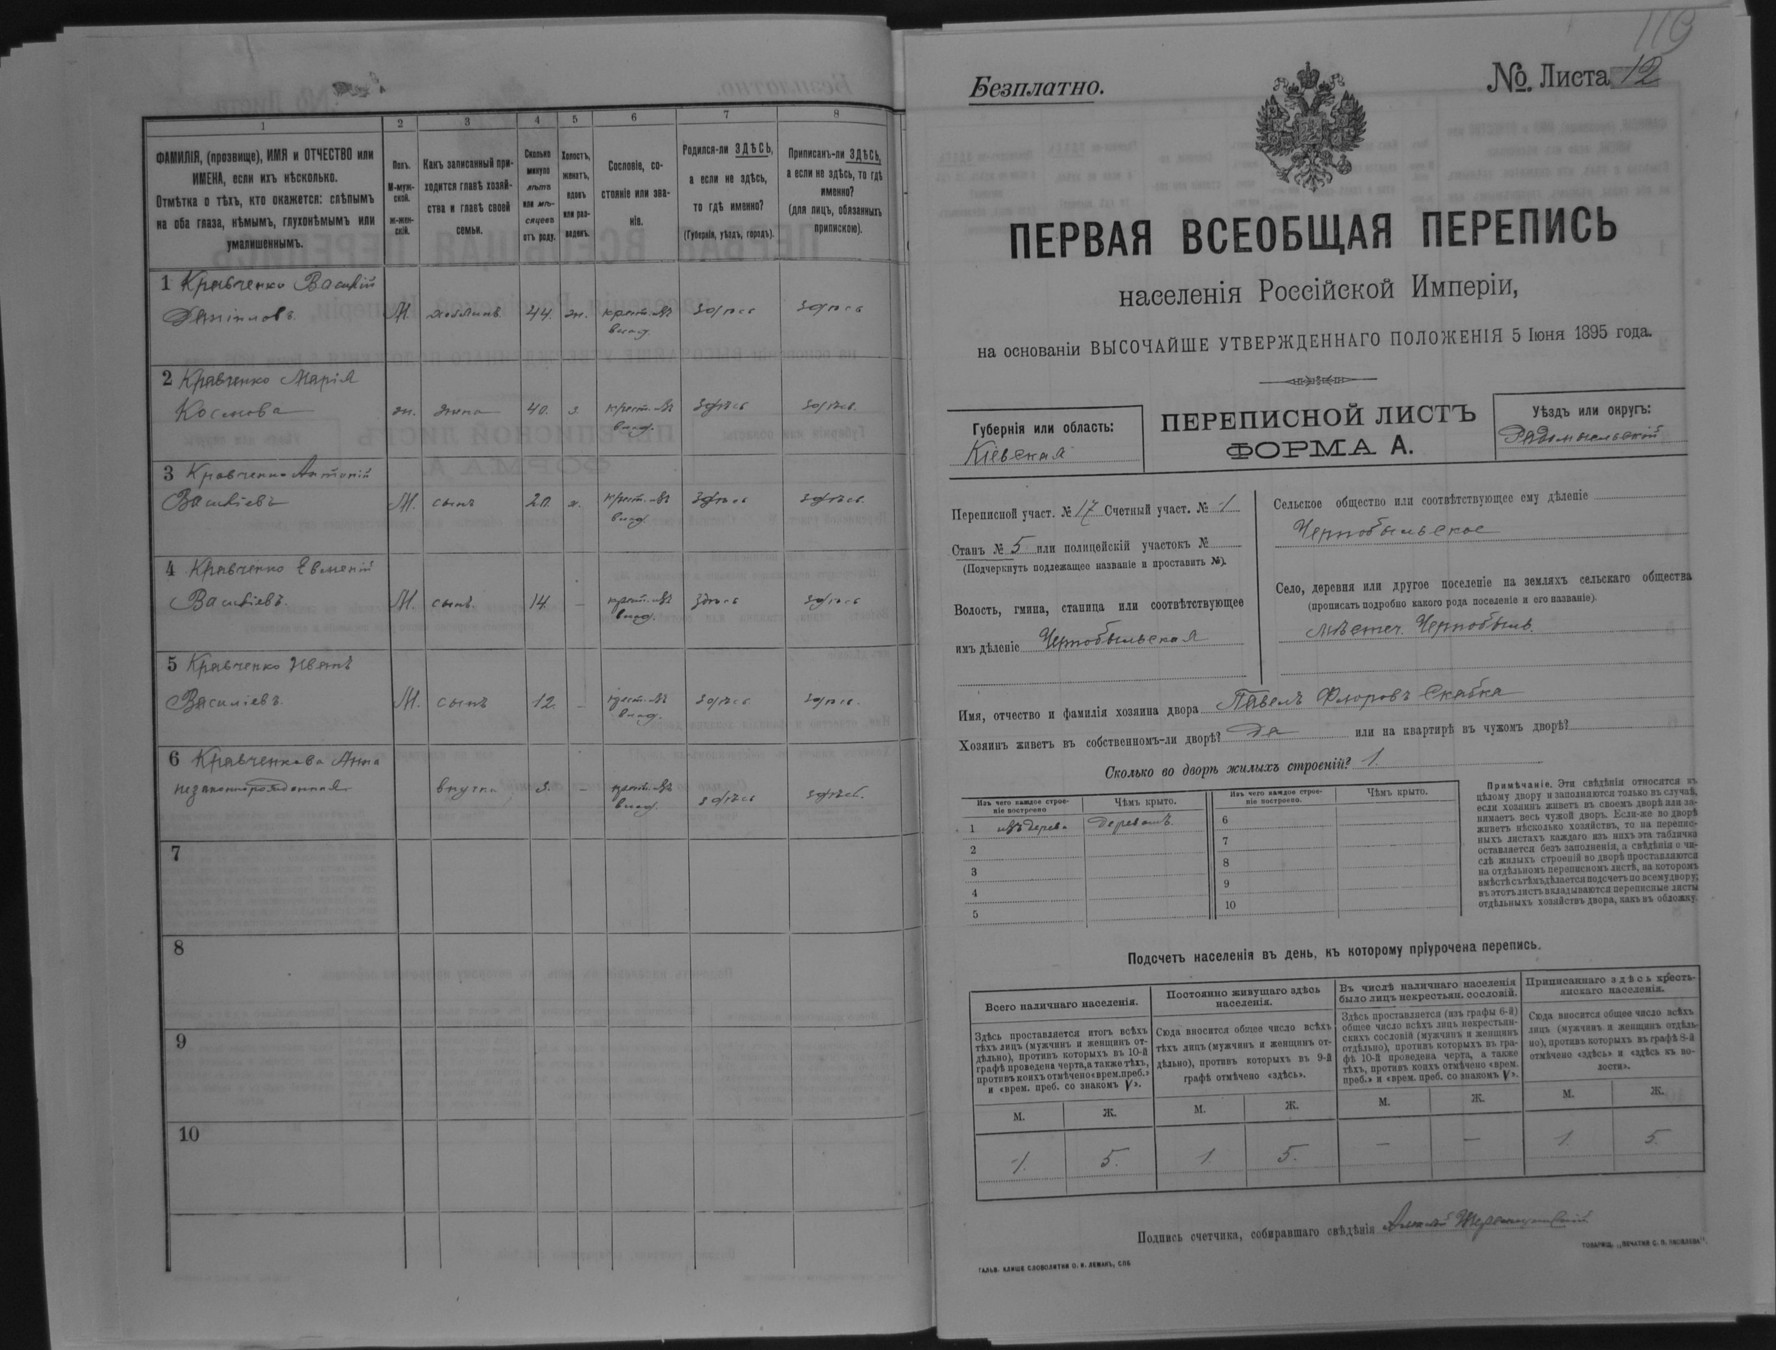 1
2
3
4
5
6
7
8
ФАМИЛІЯ, (прозвище), ИМЯ и ОТЧЕСТВО или
ИМЕНА, если ихъ нѣсколько.
Отмѣтка о тѣхъ, кто окажется: слѣпымъ
на оба глаза, нѣмымъ, глухонѣмымъ или
умалишеннымъ.
Полъ.
М-муж-
ской.
ж-жен-
скій.
Какъ записанный при-
ходится главѣ хозяй-
ства и главѣ своей
семьи.
Сколько
минуло
лѣтъ
или мѣ-
сяцевъ
отъ роду.
Холостъ,
женатъ,
вдовъ
или раз-
веденъ.
Сословіе, со-
стояніе или зва-
ніе.
Родился-ли ЗДѢСЬ,
а если не здѣсь,
то гдѣ именно?
(Губернія, уѣздъ, городъ).
Приписанъ-ли ЗДѢСЬ,
а если не здѣсь, то гдѣ
именно?
(для лицъ, обязанныхъ
припискою).
1 Кравченко Василій
Даніиловъ М. хозяинъ 44. ж. крест. здѣсь здѣсь
2 Кравченко Марія
Космова ж. жена 40. з. крест. здѣсь здѣсь
3 Кравченко Антоній
Васильевъ М. сынъ 20. х. крест. здѣсь здѣсь
4 Кравченко Евменій
Васильевъ М. сынъ 14 – крест. здѣсь здѣсь
5 Кравченко Иванъ
Василіевъ М. сынъ 12. – крест. здѣсь здѣсь
6 Кравченкова Анна
незаконнорожденная внучка 3. – крест. здѣсь здѣсь
7
8
9
10
119
Безплатно.
№ Листа 12
ПЕРВАЯ ВСЕОБЩАЯ ПЕРЕПИСЬ
населенія Россійской Имперіи,
на основаніи ВЫСОЧАЙШЕ УТВЕРЖДЕННАГО ПОЛОЖЕНІЯ 5 Іюня 1895 года.
Губернія или область:
Кіевская
ПЕРЕПИСНОЙ ЛИСТЪ
ФОРМА А.
Уѣздъ или округъ:
Радомысльскій
Переписной участ. № 17 Счетный участ. № 1
Станъ № 5 или полицейскій участокъ №
(Подчеркнуть подлежащее названіе и проставить №).
Волость, гмина, станица или соотвѣтствующее
имъ дѣленіе Чернобыльская
Сельское общество или соотвѣтствующее ему дѣленіе
Чернобыльское
Село, деревня или другое поселеніе на земляхъ сельскаго общества
(прописать подробно какого рода поселеніе и его названіе).
мѣстеч. Чернобыль.
Имя, отчество и фамилія хозяина двора Павелъ Флоровъ Скабка
Хозяинъ живетъ въ собственномъ-ли дворѣ? да или на квартирѣ въ чужомъ дворѣ?
Сколько во дворѣ жилыхъ строеній? 1.
Изъ чего каждое строе-
ніе построено
Чѣмъ крыто.
Изъ чего каждое строе-
ніе построено.
Чѣмъ крыто.
1 изъ дерева деревомъ.
2
3
4
5
6
7
8
9
10
Примѣчаніе. Эти свѣдѣнія относятся къ
цѣлому двору и заполняются только въ случаѣ,
если хозяинъ живетъ въ своемъ дворѣ или за-
нимаетъ весь чужой дворъ. Если-же во дворѣ
живетъ нѣсколько хозяйствъ, то на перепис-
ныхъ листахъ каждаго изъ нихъ эта табличка
оставляется безъ заполненія, а свѣдѣнія о чи-
слѣ жилыхъ строеній во дворѣ проставляются
на отдѣльномъ переписномъ листѣ, на которомъ
вмѣстѣ съ тѣмъ дѣлается подсчетъ по всему двору;
въ этотъ листъ вкладываются переписные листы
отдѣльныхъ хозяйствъ двора, какъ въ обложку.
Подсчетъ населенія въ день, къ которому пріурочена перепись.
Всего наличнаго населенія.
Постоянно живущаго здѣсь
населенія.
Въ числѣ наличнаго населенія
было лицъ некрестьян. сословій.
Приписаннаго здѣсь кресть-
янскаго населенія.
Здѣсь проставляется итогъ всѣхъ
тѣхъ лицъ (мужчинъ и женщинъ от-
дѣльно), противъ которыхъ въ 10-й
графѣ проведена черта, а также тѣхъ,
противъ коихъ отмѣчено «врем. преб.»
и «врем. преб. со знакомъ V».
Сюда вносится общее число всѣхъ
тѣхъ лицъ (мужчинъ и женщинъ от-
дѣльно), противъ которыхъ въ 9-й
графѣ отмѣчено «здѣсь».
Здѣсь проставляется (изъ графы 6-й)
общее число всѣхъ лицъ некрестьян-
скихъ сословій (мужчинъ и женщинъ
отдѣльно), противъ которыхъ въ гра-
фѣ 10-й проведена черта, а также
тѣхъ, противъ коихъ отмѣчено «врем.
преб.» и «врем. преб. со знакомъ V».
Сюда вносится общее число всѣхъ
лицъ (мужчинъ и женщинъ отдѣль-
но), противъ которыхъ въ графѣ 8-й
отмѣчено «здѣсь» и «здѣсь въ во-
лости».
М. Ж. М. Ж. М. Ж. М. Ж.
1. 5. 1 5. – – 1 5.
Подпись счетчика, собиравшаго свѣдѣнія
ГАЛЬВ. КЛИШЕ СЛОВОЛИТНИ О. И. ЛЕМАНЪ, СПБ.
ТОВАРИЩ. „ПЕЧАТНЯ С. П. ЯКОВЛЕВА".